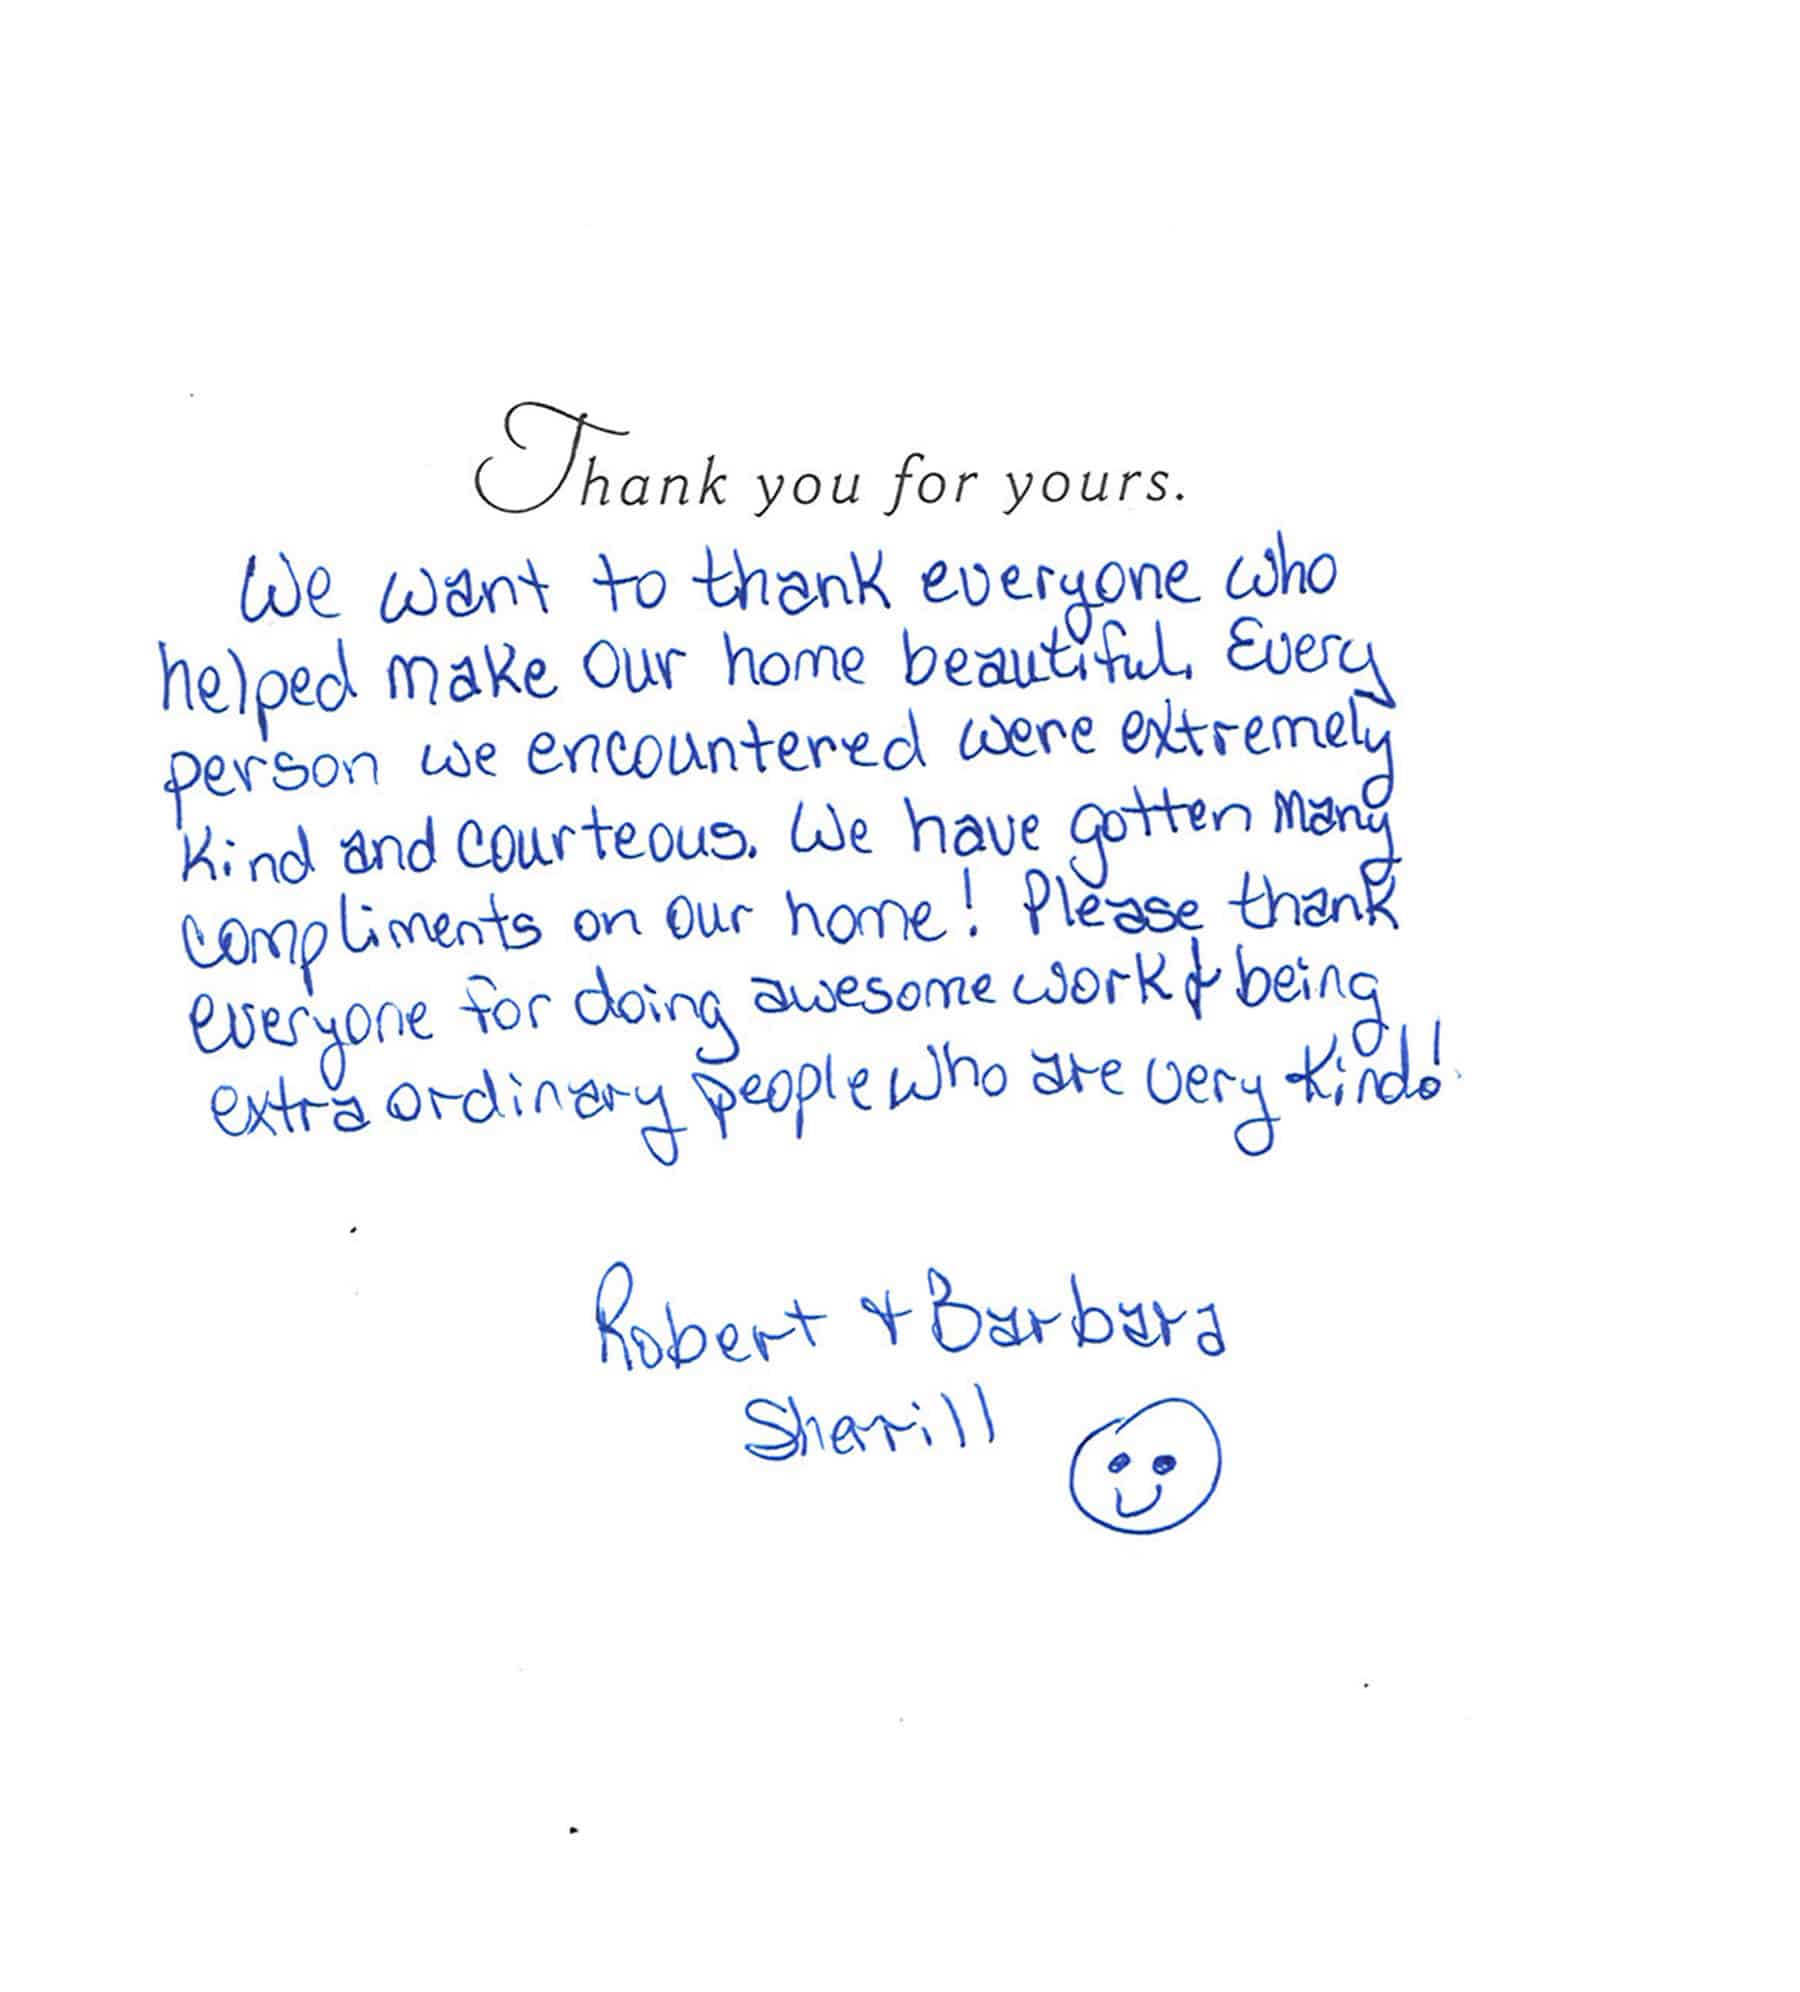 Thank you for yours.
We want to thank everyone who
helped make our home beautiful. Every
person we encountered were extremely
kind and courteous. We have gotten many
compliments on our home! Please thank
everyone for doing awesome work & being
extra ordinary people who are very kind!
Robert & Barbara
Sherrill